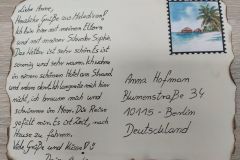 Liebe Anne,
Herzliche Grüße aus Malediven!
Ich bin hier mit meinen Eltern
und mit meiner Schwester Sophie.
Das Wetter ist sehr schön. Es ist
sonnig und sehr warm. Ich wohne
in einem schönen Hotel am Strand
nicht, ich brauche man und
schwimme im Meer. Die Reise
gefällt mir. Es ist Zeit, nach
Hause zu fahren.
Viele Grüße und
Anna Hofmann
Blumenstraße 34
10115 - Berlin
Deutschland